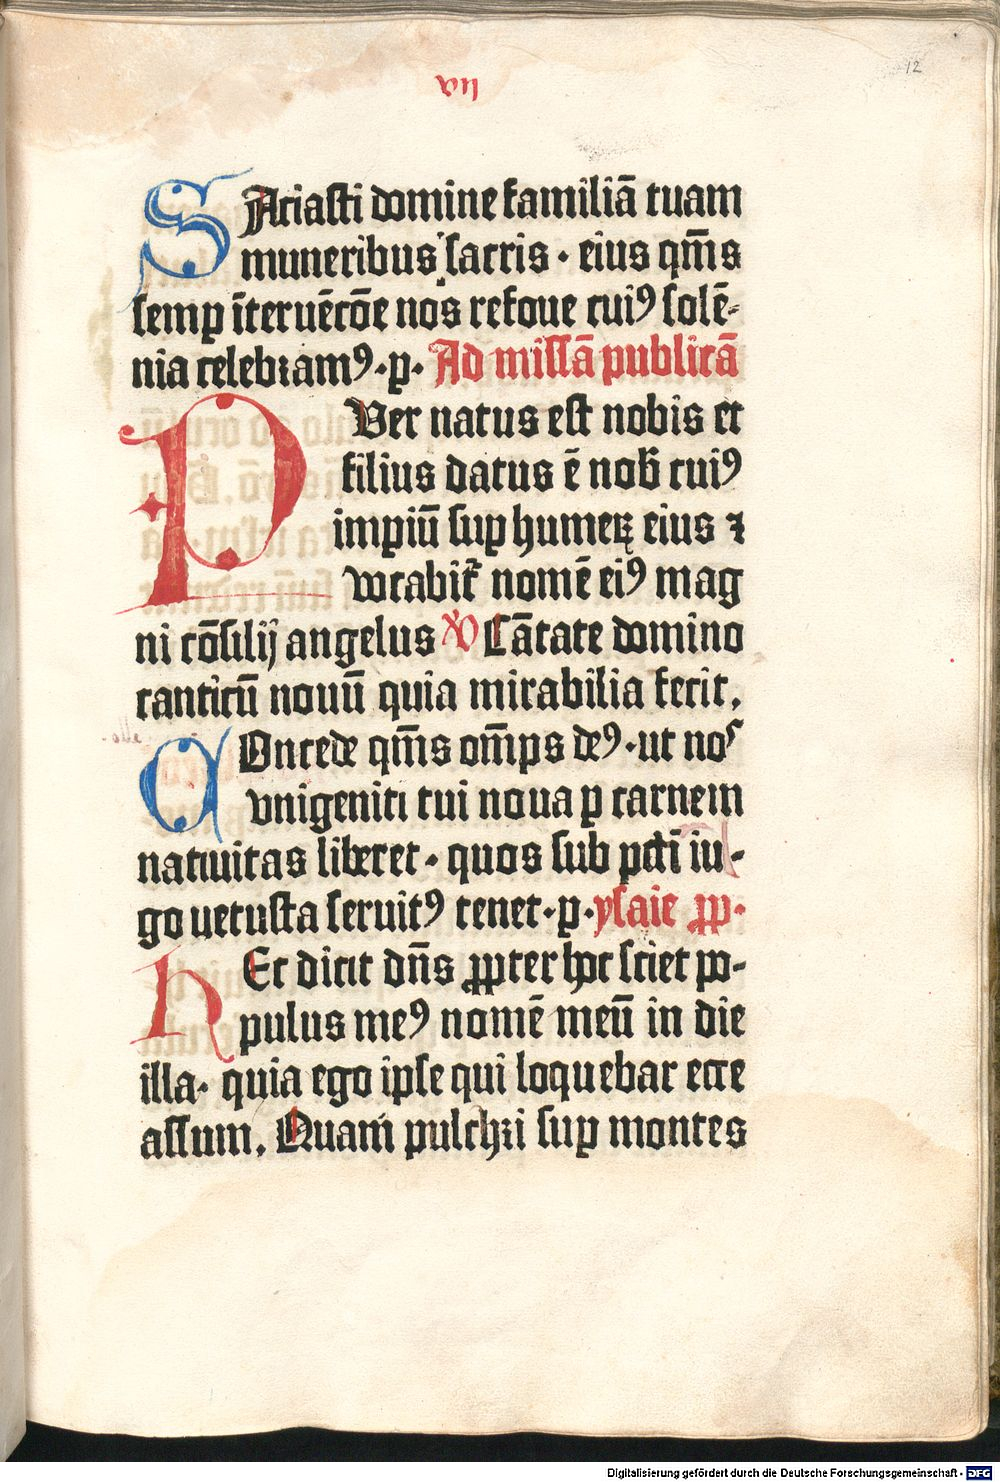 12
vii
SAciasti domine familiā tuam
muneribus sacris · eius qm̄s
semꝑ īteruēcōe nos refoue cuiꝰ solē-
nia celebꝛamꝰ · p · Ad missā publicā
PVer natus est nobis et
filius datus ē nob̄ cuiꝰ
impiū suꝑ humeꝝ eius ⁊
vocabit̄ nomē eiꝰ mag
ni cōsilij angelus Cātate domino
canticū nouū quia mirabilia fecit.
COncede qm̄s om̄ps deꝰ · ut nos
vnigeniti tui noua ꝑ carnem
natiuitas liberet · quos sub pcti iu-
go uetusta seruitꝰ tenet · p · ysaie ꝓp ·
hEc dicit dn̄s ꝓpter hoc sciet po-
pulus meꝰ nomē meū in die
illa · quia ego ipse qui loquebar ecce
assum. Quam pulchꝛi suꝑ montes
Digitalisierung gefördert durch die Deutsche Forschungsgemeinschaft - DFG